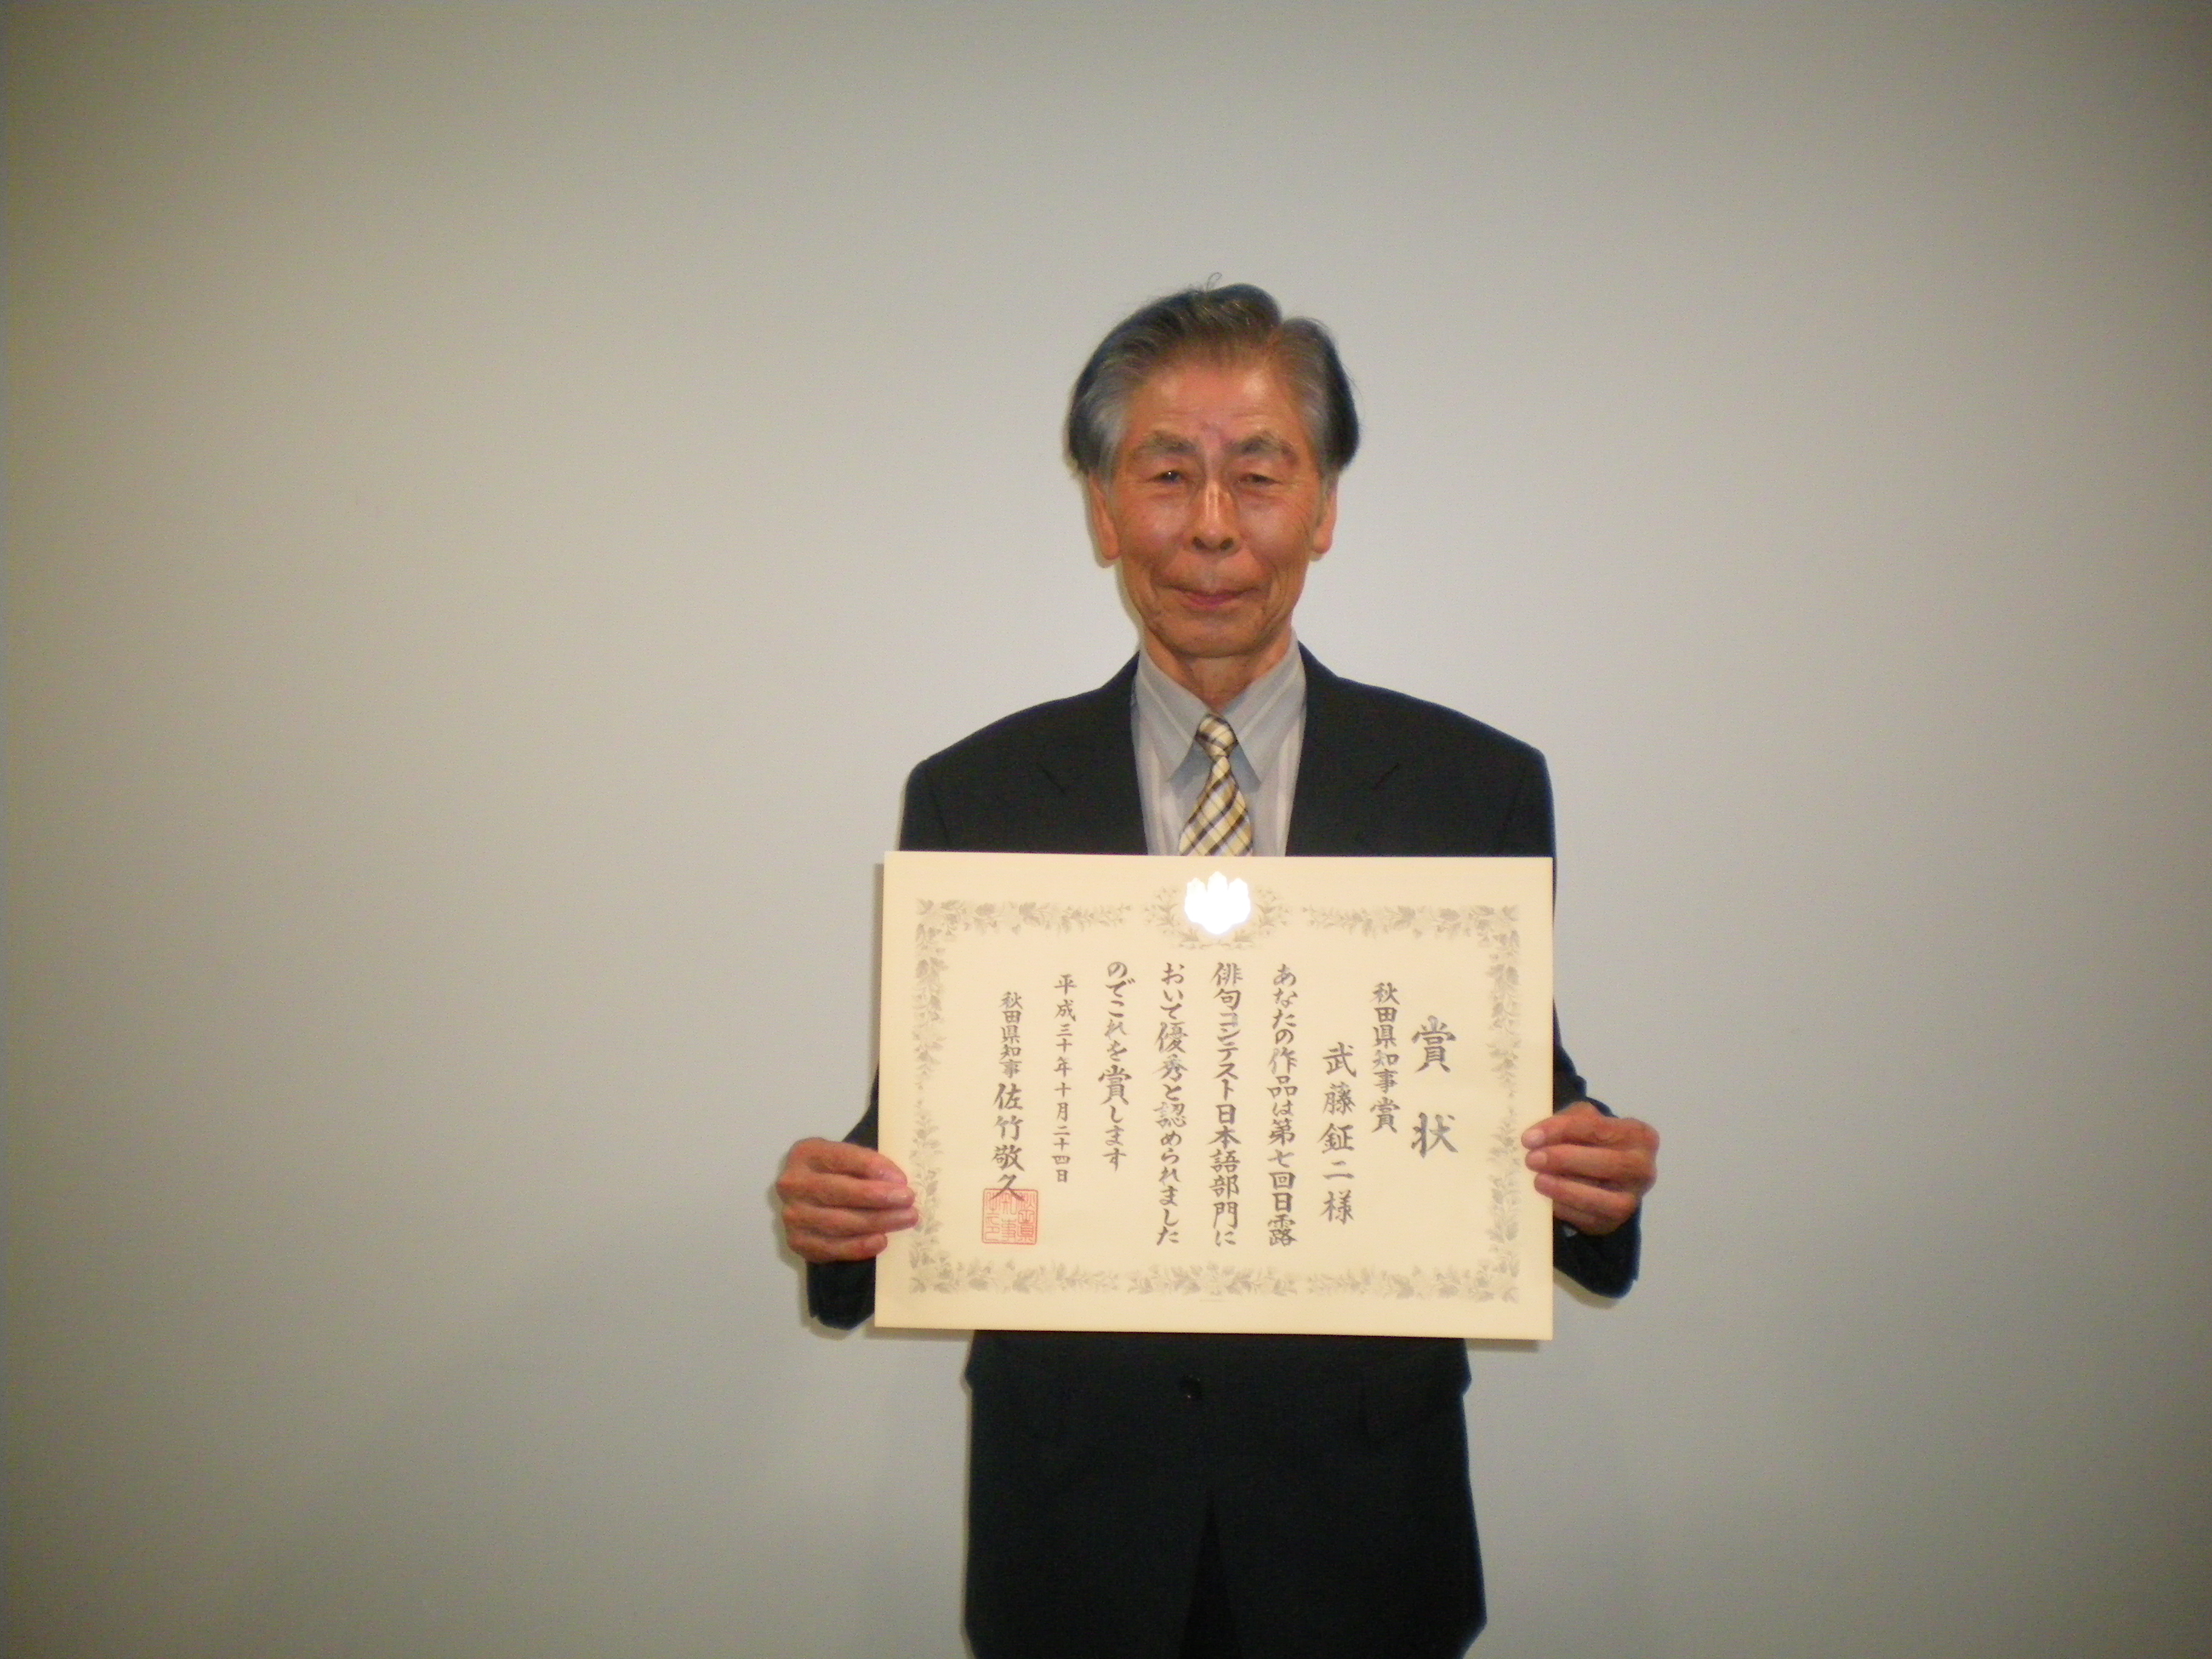 賞状
秋田県知事賞
武藤鉦二様
あなたの作品は第七回日露
俳句コンテスト日本語部門に
おいて優秀と認められました
のでこれを賞します
平成三十年十月二十四日
秋田県知事 佐竹敬久